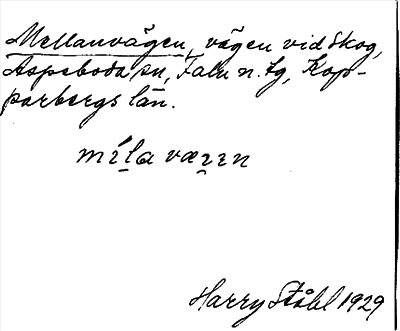 Mellanvägen, vägen vid Skog,
Aspeboda sn, Falu n. tg, Kop-
parbergs län.
Harry Ståhl 1929